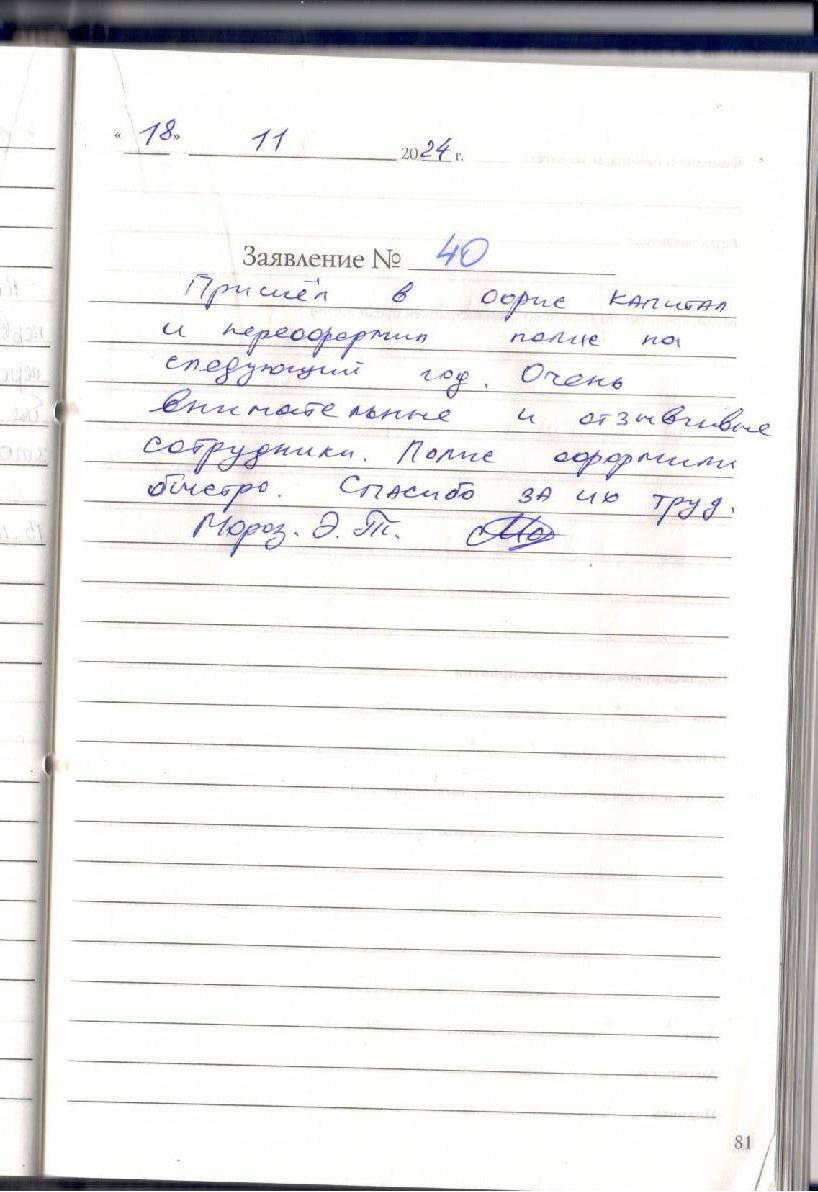 « 18 » 11 2024 г.
Заявление № 40
Пришёл в офис КАПИТАЛ
и переоформил полис на
следующий год. Очень
внимательные и отзывчивые
сотрудники. Полис оформили
быстро. Спасибо за их труд.
Мороз. Э. Т.
81